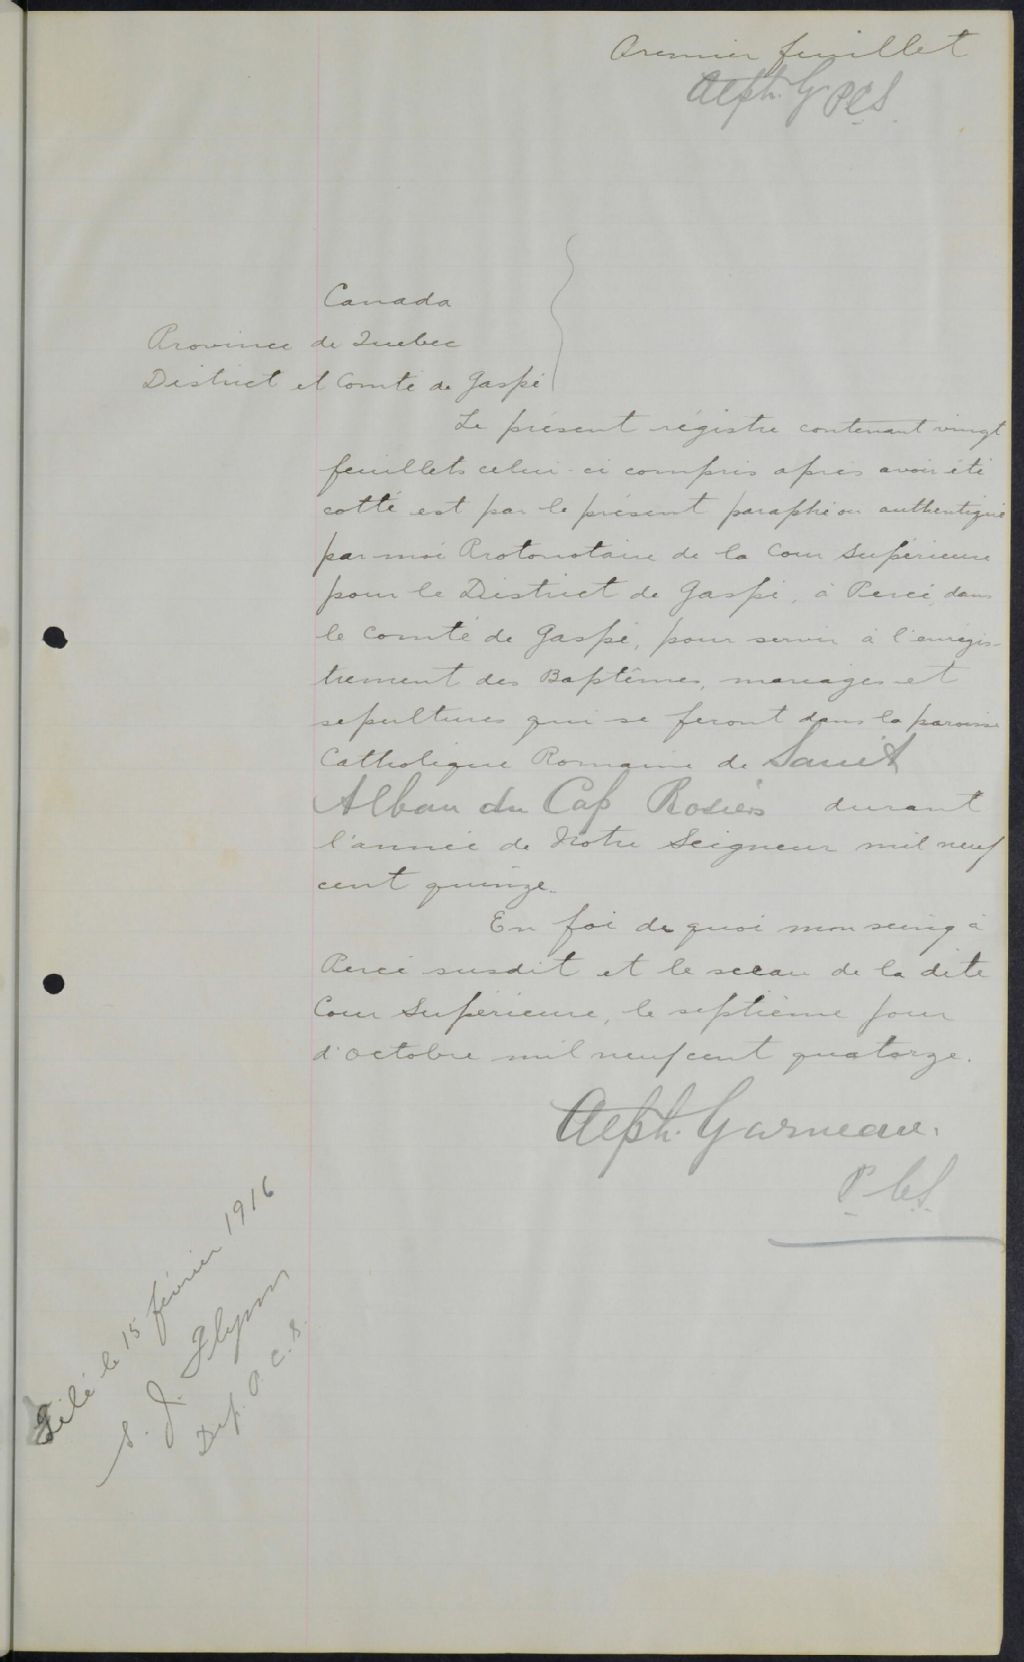 Premier feuillet
Alph. G PCS.
Canada
Province de Quebec
District et Comté de Gaspé
Le présent régistre contenant vingt
feuillets celui-ci compris après avoir été
cotté est par le présent paraphé ou authentiqué
par moi Protonotaire de la Cour Supérieure
pour le District de Gaspé, à Percé, dans
le Comté de Gaspé, pour servir à l'enrégis-
trement des Baptêmes, mariages et
sépultures qui se feront dans la paroisse
Catholique Romaine de Saint
Alban du Cap Rosiers durant
l'année de Notre Seigneur mil neuf
cent quinze.
En foi de quoi mon seing à
Percé susdit et le sceau de la dite
Cour Supérieure, le septième jour
d'octobre mil neuf cent quatorze.
Alph. Garneau.
P.C.S.
Filé le 15 février 1916
S. J. Flynn
Dep. P. C. S.